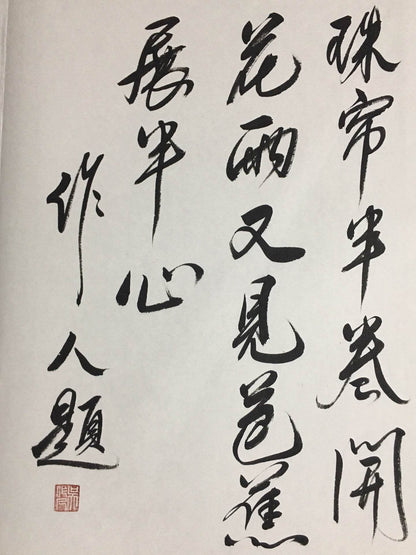 珠帘半卷開
花雨又見芭蕉
展半心
作人題